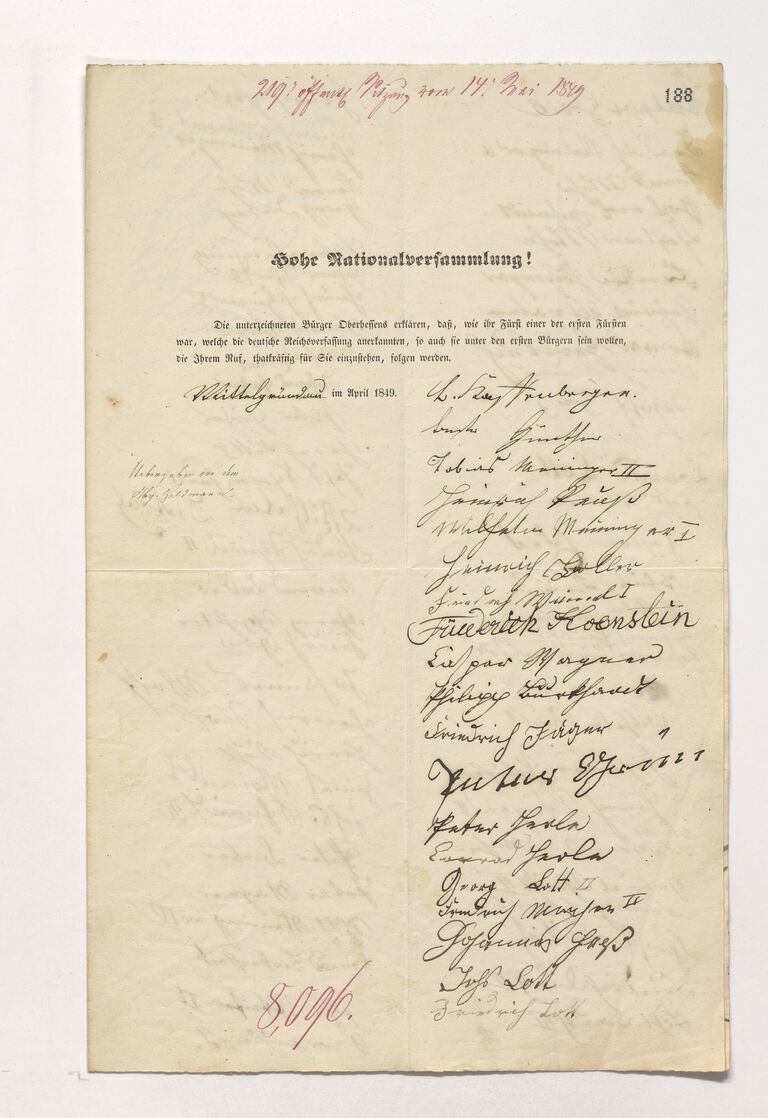 219. öffentl. Sitzung vom 14. Mai 1849
188
Hohe Nationalversammlung!
Die unterzeichneten Bürger Oberhessens erklären, daß, wie ihr Fürst einer der ersten Fürsten
war, welche die deutsche Reichsverfassung anerkannten, so auch sie unter den ersten Bürgern sein wollen,
die Ihrem Ruf, thatkräftig für Sie einzustehen, folgen werden.
Mittelgründau im April 1849.
Günther
Tobias Meininger II
Uebergeben von dem
Heinrich
Wilhelm Meininger I
Heinrich
I
Friederich Hoenstein
Caspar Wagner
Philipp Burkhardt
Friedrich Jäger
Peter Herle
Conrad Herle
Georg Lott II
Friedrich II
Johannes
Johs Lott
Friedrich Lott
8,096.